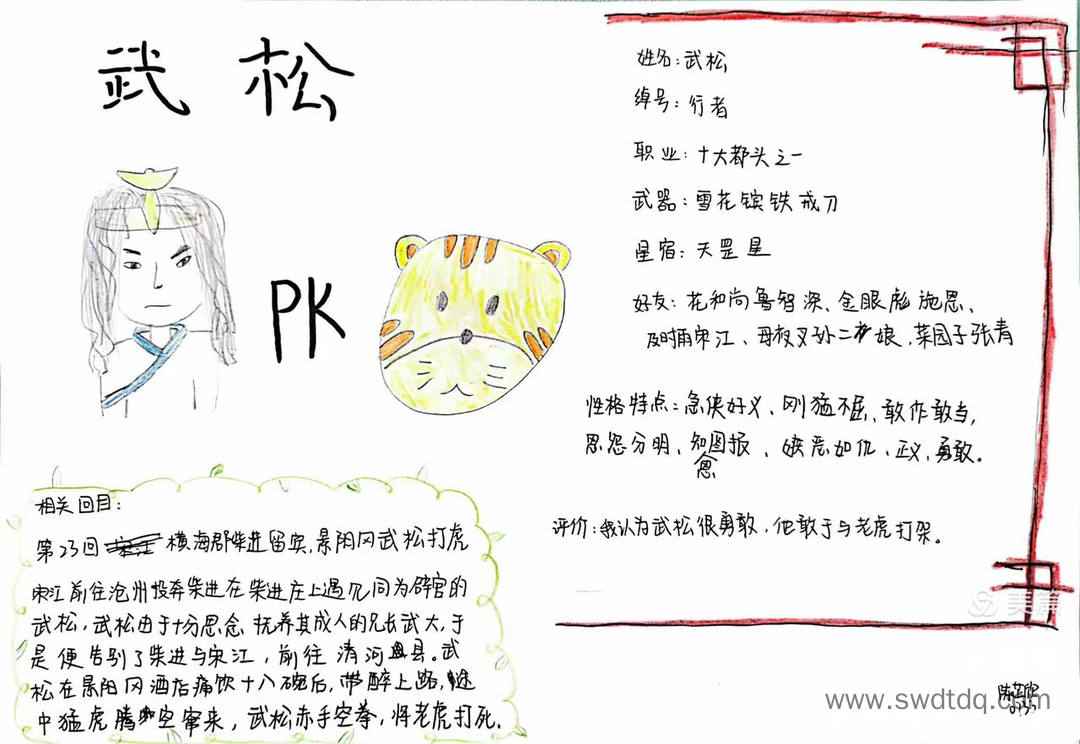 武 松
PK
姓名：武松
绰号：行者
职业：十大都头之一
武器：雪花镔铁戒刀
星宿：天罡星
好友：花和尚鲁智深、金眼彪施恩、
及时雨宋江、母夜叉孙二娘、菜园子张青
性格特点：急侠好义、刚猛不屈、敢作敢当，
恩怨分明、知图报、嫉恶如仇、正义，勇敢。
恩
评价：我认为武松很勇敢，他敢于与老虎打架。
相关回目：
第23回 横海郡柴进留宾，景阳冈武松打虎
宋江前往沧州投奔柴进在柴进庄上遇见同为辞官的
武松，武松由于十分思念抚养其成人的兄长武大，于
是便告别了柴进与宋江，前往清河县。武
松在景阳冈酒店痛饮十八碗后，带醉上路，途
中猛虎腾空窜来，武松赤手空拳，将老虎打死。
美篇
www.swdtdq.com